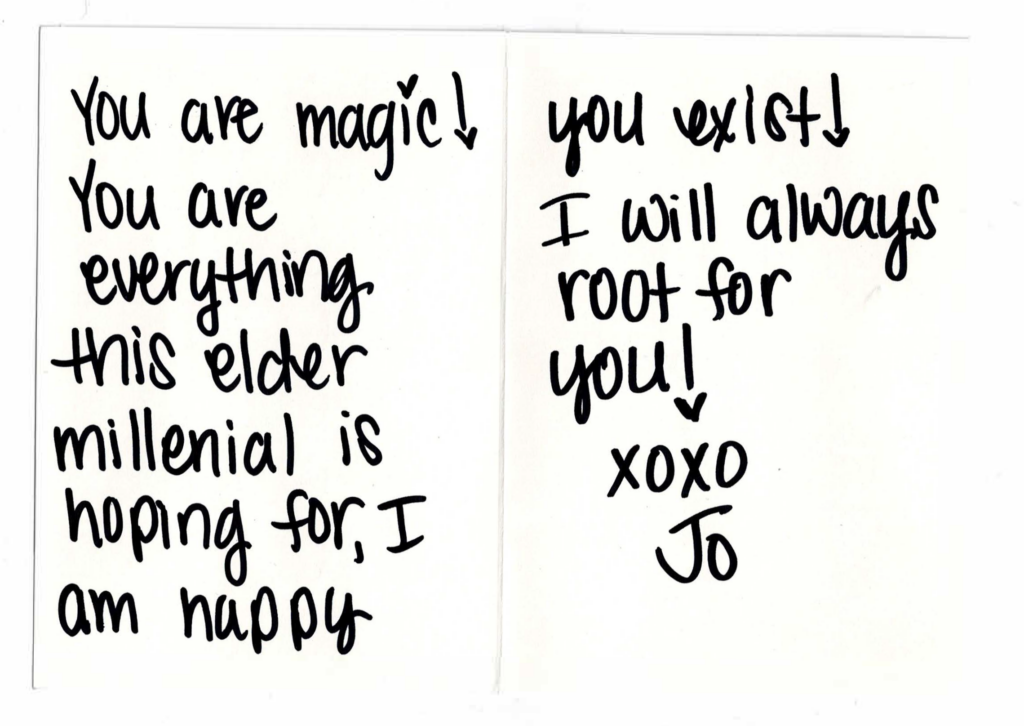 You are magic!
You are
everything
this elder
millenial is
hoping for, I
am happy
you exist!
I will always
root for
you!
xoxo
Jo